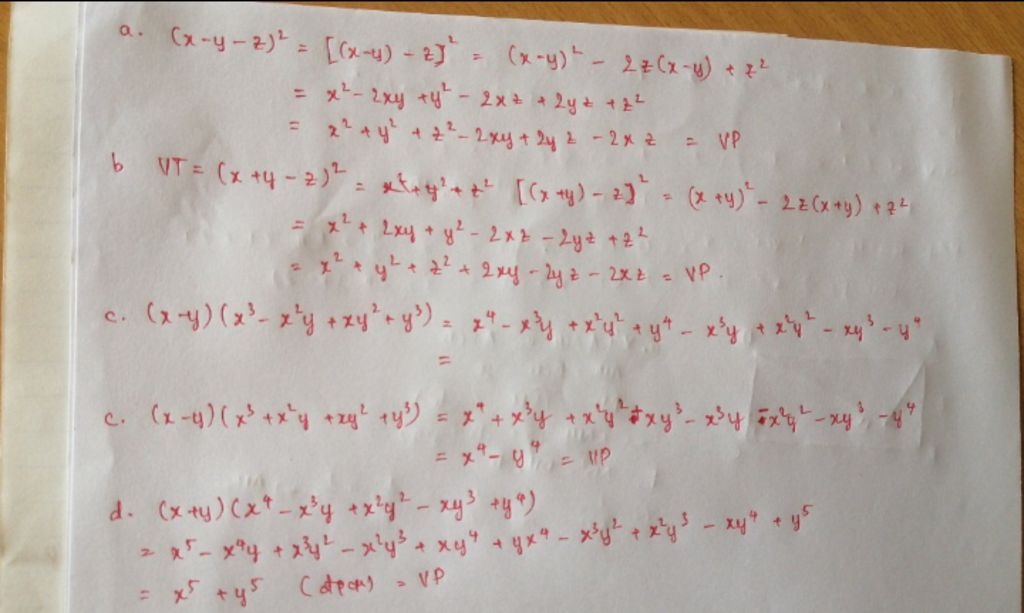 a. (x-y-z)² = [(x-y) - z]² = (x-y)² - 2z(x-y) + z²
= x² - 2xy + y² - 2xz + 2yz + z²
= x² + y² + z² - 2xy + 2yz - 2xz = VP
b VT = (x+y-z)² = x² + y² + z² [(x+y) - z]² = (x+y)² - 2z(x+y) + z²
= x² + 2xy + y² - 2xz - 2yz + z²
= x² + y² + z² + 2xy - 2yz - 2xz = VP.
c. (x-y)(x³ - x²y + xy² + y³) = x⁴ - x³y + x²y² + y⁴ - x³y + x²y² - xy³ - y⁴
=
c. (x-y)(x³ + x²y + xy² + y³) = x⁴ + x³y + x²y² + xy³ - x³y - x²y² - xy³ - y⁴
= x⁴ - y⁴ = VP
d. (x+y)(x⁴ - x³y + x²y² - xy³ + y⁴)
= x⁵ - x⁴y + x³y² - x²y³ + xy⁴ + yx⁴ - x³y² + x²y³ - xy⁴ + y⁵
= x⁵ + y⁵ (đpcm) = VP